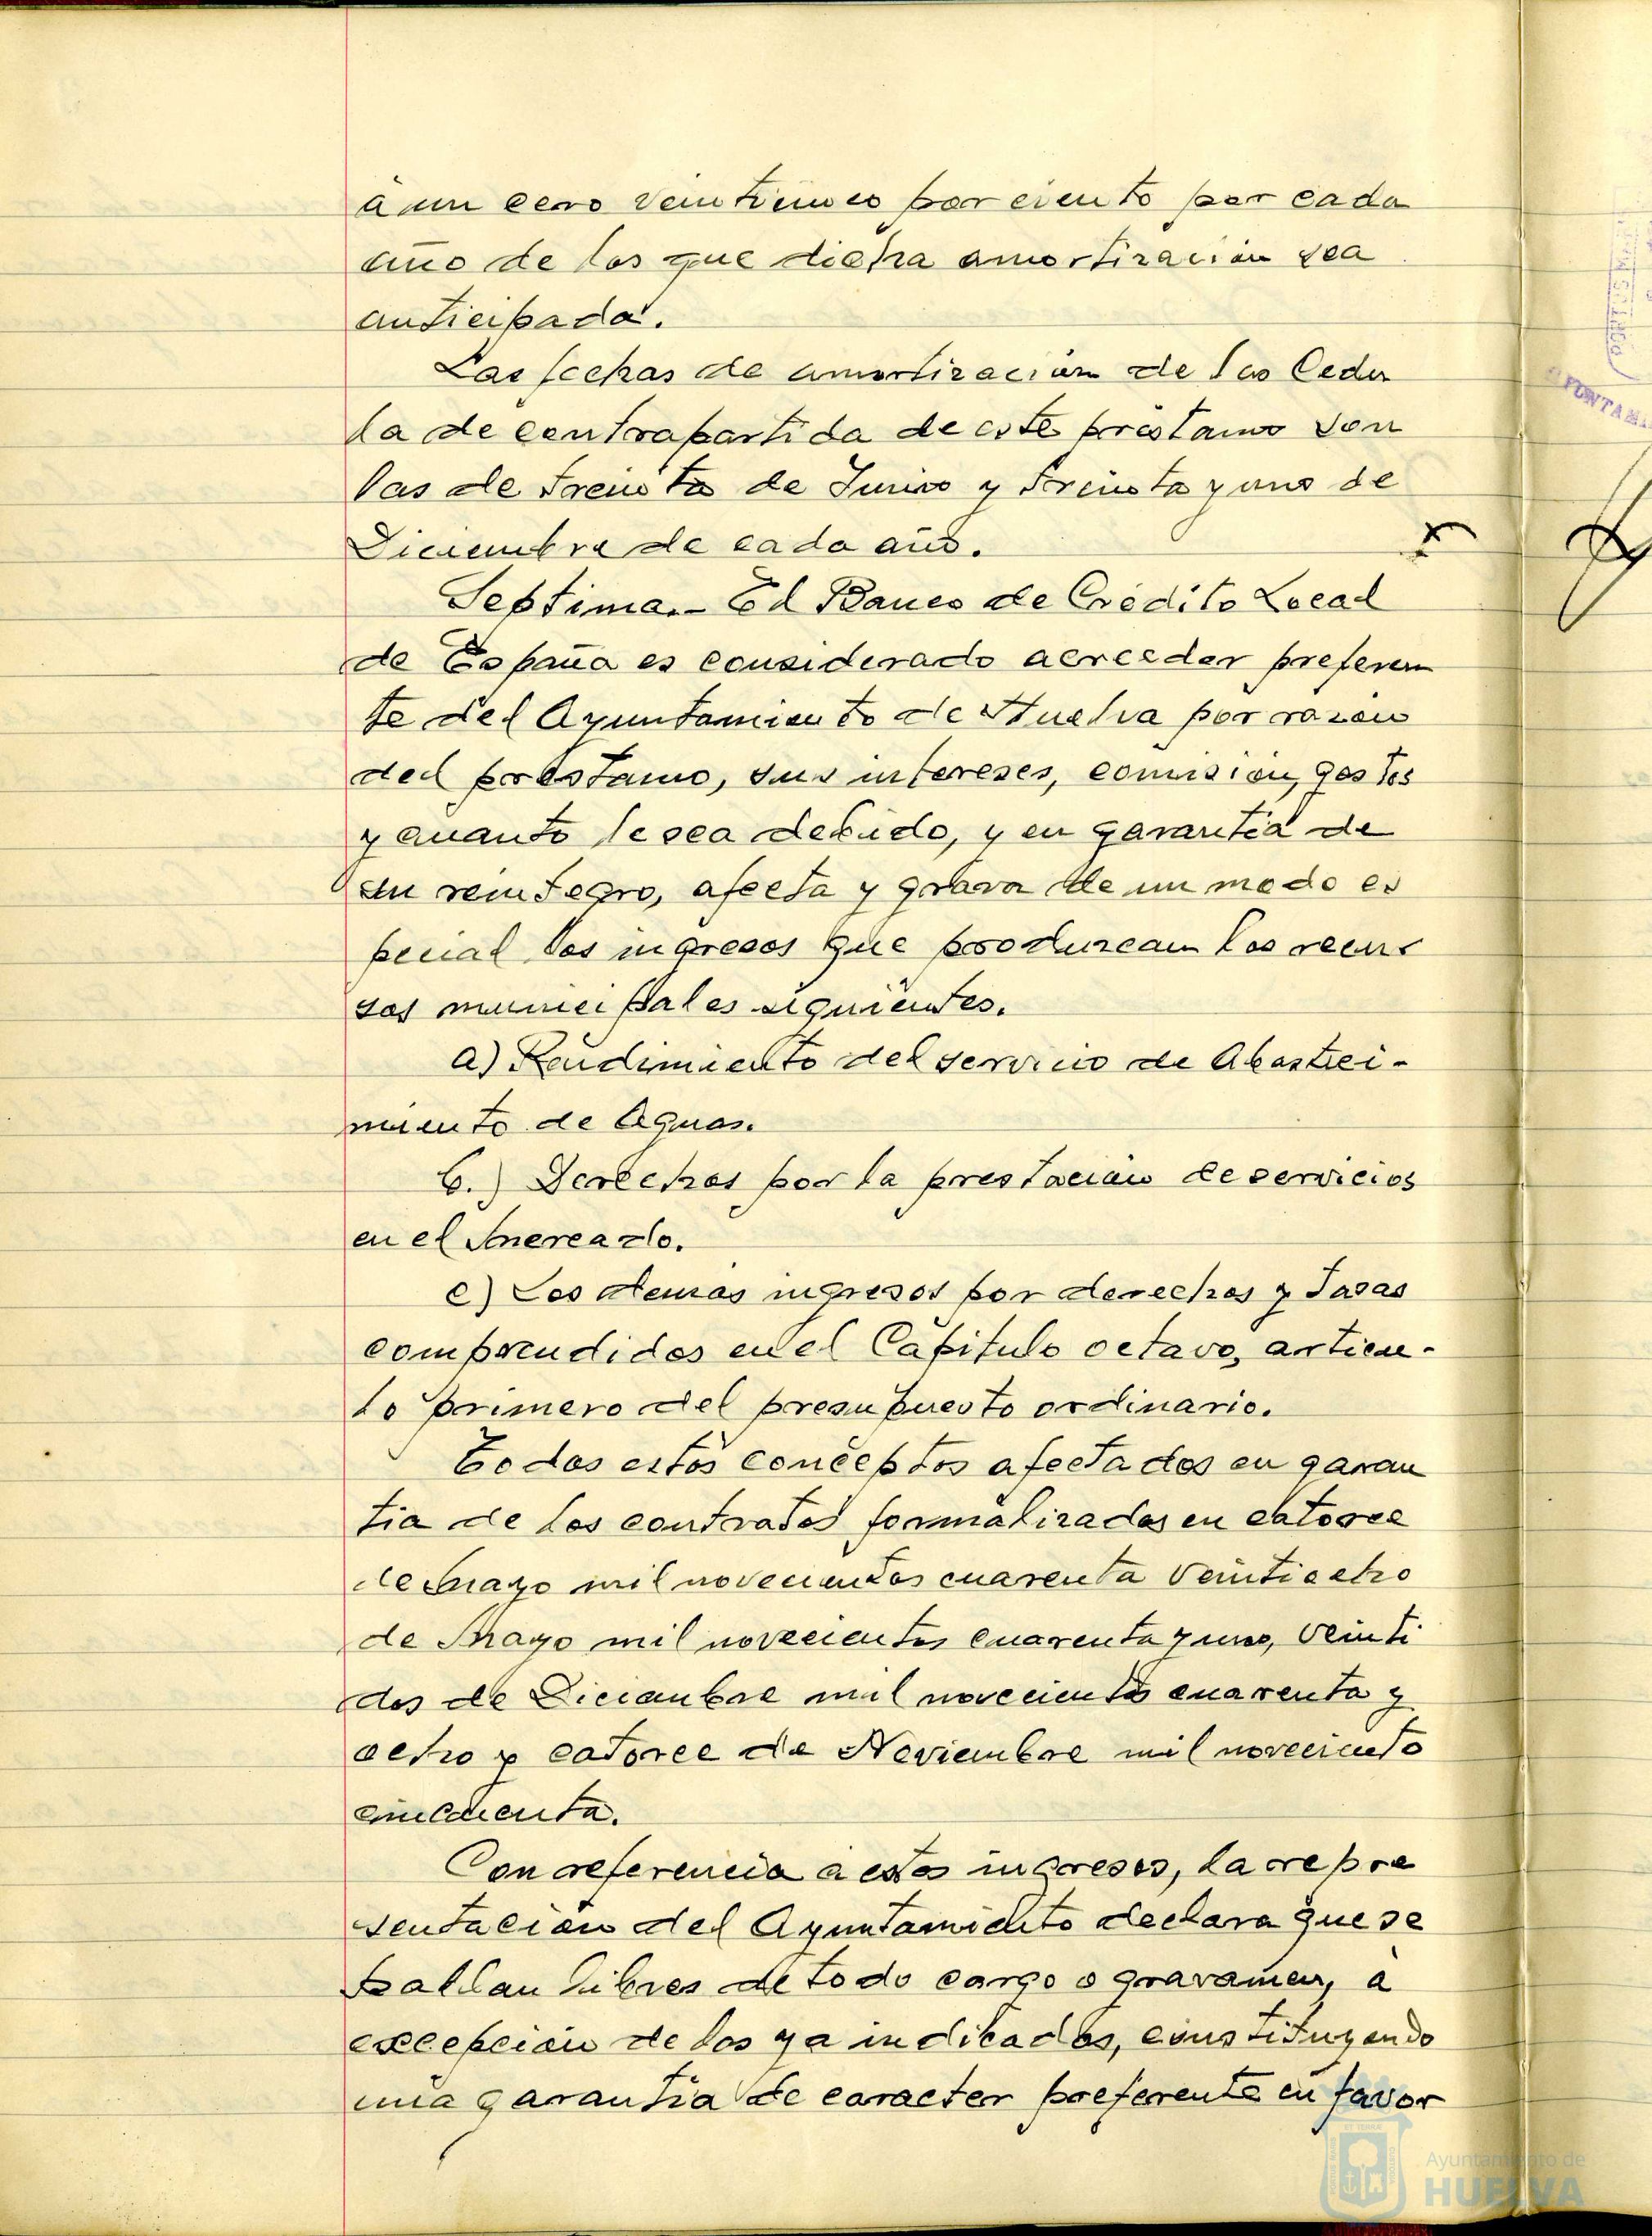 á un cero veinticinco por ciento por cada
año de los que dicha amortización sea
anticipada.
Las fechas de amortización de las Cedu
la de contrapartida de este préstamo son
las de treinta de Junio y treinta y uno de
Diciembre de cada año.
Septima.- El Banco de Crédito Local
de España es considerado acreedor preferen
te del Ayuntamiento de Huelva por razon
del préstamo, sus intereses, comision, gastos
y cuanto le sea debido, y en garantía de
su reintegro, afecta y grava de un modo es
pecial los ingresos que produzcan los recur
sos municipales siguientes.
a) Rendimiento del servicio de Abasteci-
miento de Aguas.
b.) Derechos por la prestacion de servicios
en el Mercado.
c) Los demas ingresos por derechos y Tasas
comprendidos en el Capitulo octavo, articu-
lo primero del presupuesto ordinario.
Todos estos conceptos afectados en garan
tia de los contratos formalizados en catorce
de Mayo mil novecientos cuarenta Veintiocho
de Mayo mil novecientos cuarenta y uno, Veinti
dos de Diciembre mil novecientos cuarenta y
ocho y catorce de Noviembre mil noveciento
cincuenta.
Con referencia a estos ingresos, la repre
sentacion del Ayuntamiento declara que se
hallan libres de todo cargo o gravamen, à
excepción de los ya indicados, constituyendo
una garantia de caracter preferente en favor
Ayuntamiento de
HUELVA